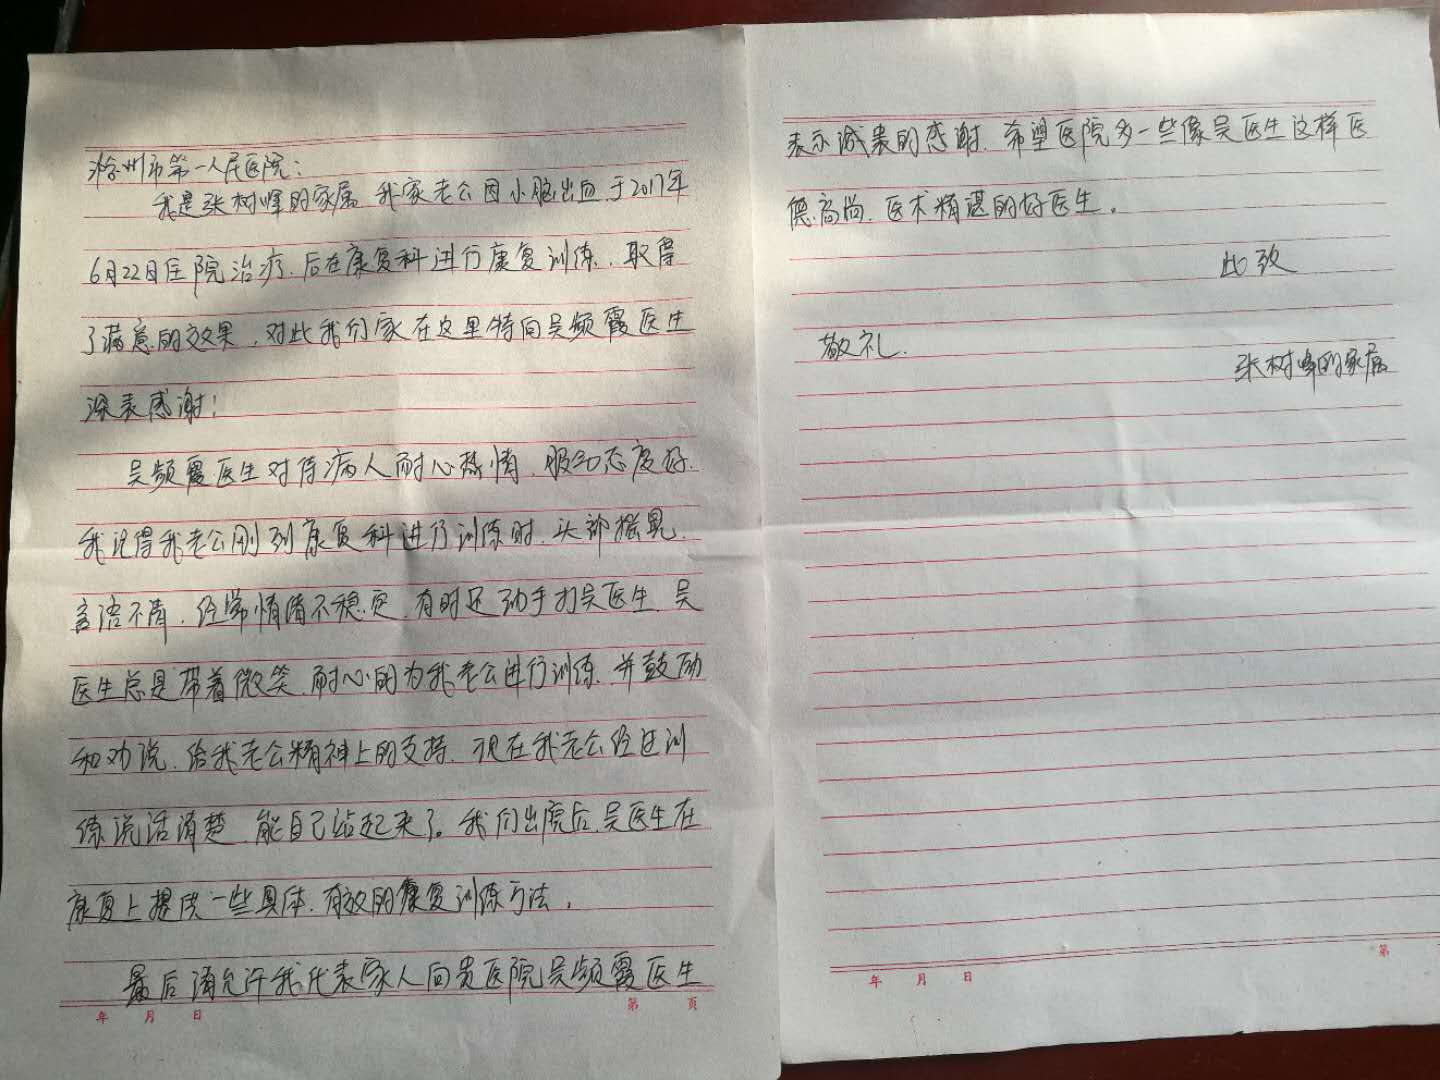 滁州市第一人民医院：
我是张树峰的家属 我家老公因小脑出血于2017年
6月22日住院治疗、后在康复科进行康复训练、取得
了满意的效果，对此我们家在这里特向吴频霞医生
深表感谢！
吴频霞医生对待病人耐心热情、服务态度好、
我记得我老公刚到康复科进行训练时、头部摇晃、
言语不清、经常情绪不稳定、有时还动手打吴医生、吴
医生总是带着微笑、耐心的为我老公进行训练、并鼓励
和劝说、给我老公精神上的支持、现在我老公经过训
练说话清楚、能自己站起来了。我们出院后、吴医生在
康复上提供一些具体、有效的康复训练方法，
最后请允许我代表家人向贵医院吴频霞医生
年 月 日 第 页
表示诚衷的感谢、希望医院多一些像吴医生这样医
德高尚、医术精湛的好医生。
此致
敬礼、
张树峰的家属
年 月 日 第